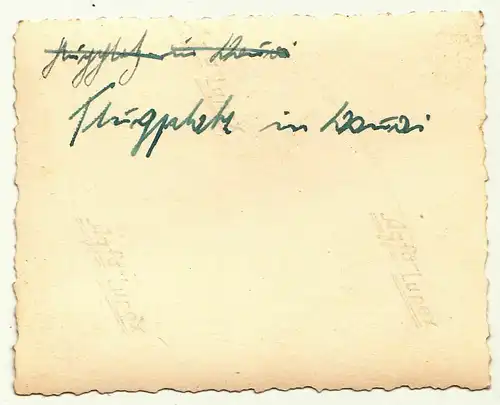 Flugplatz in
Flugplatz in
Agfa-Lupex
Agfa-Lupex